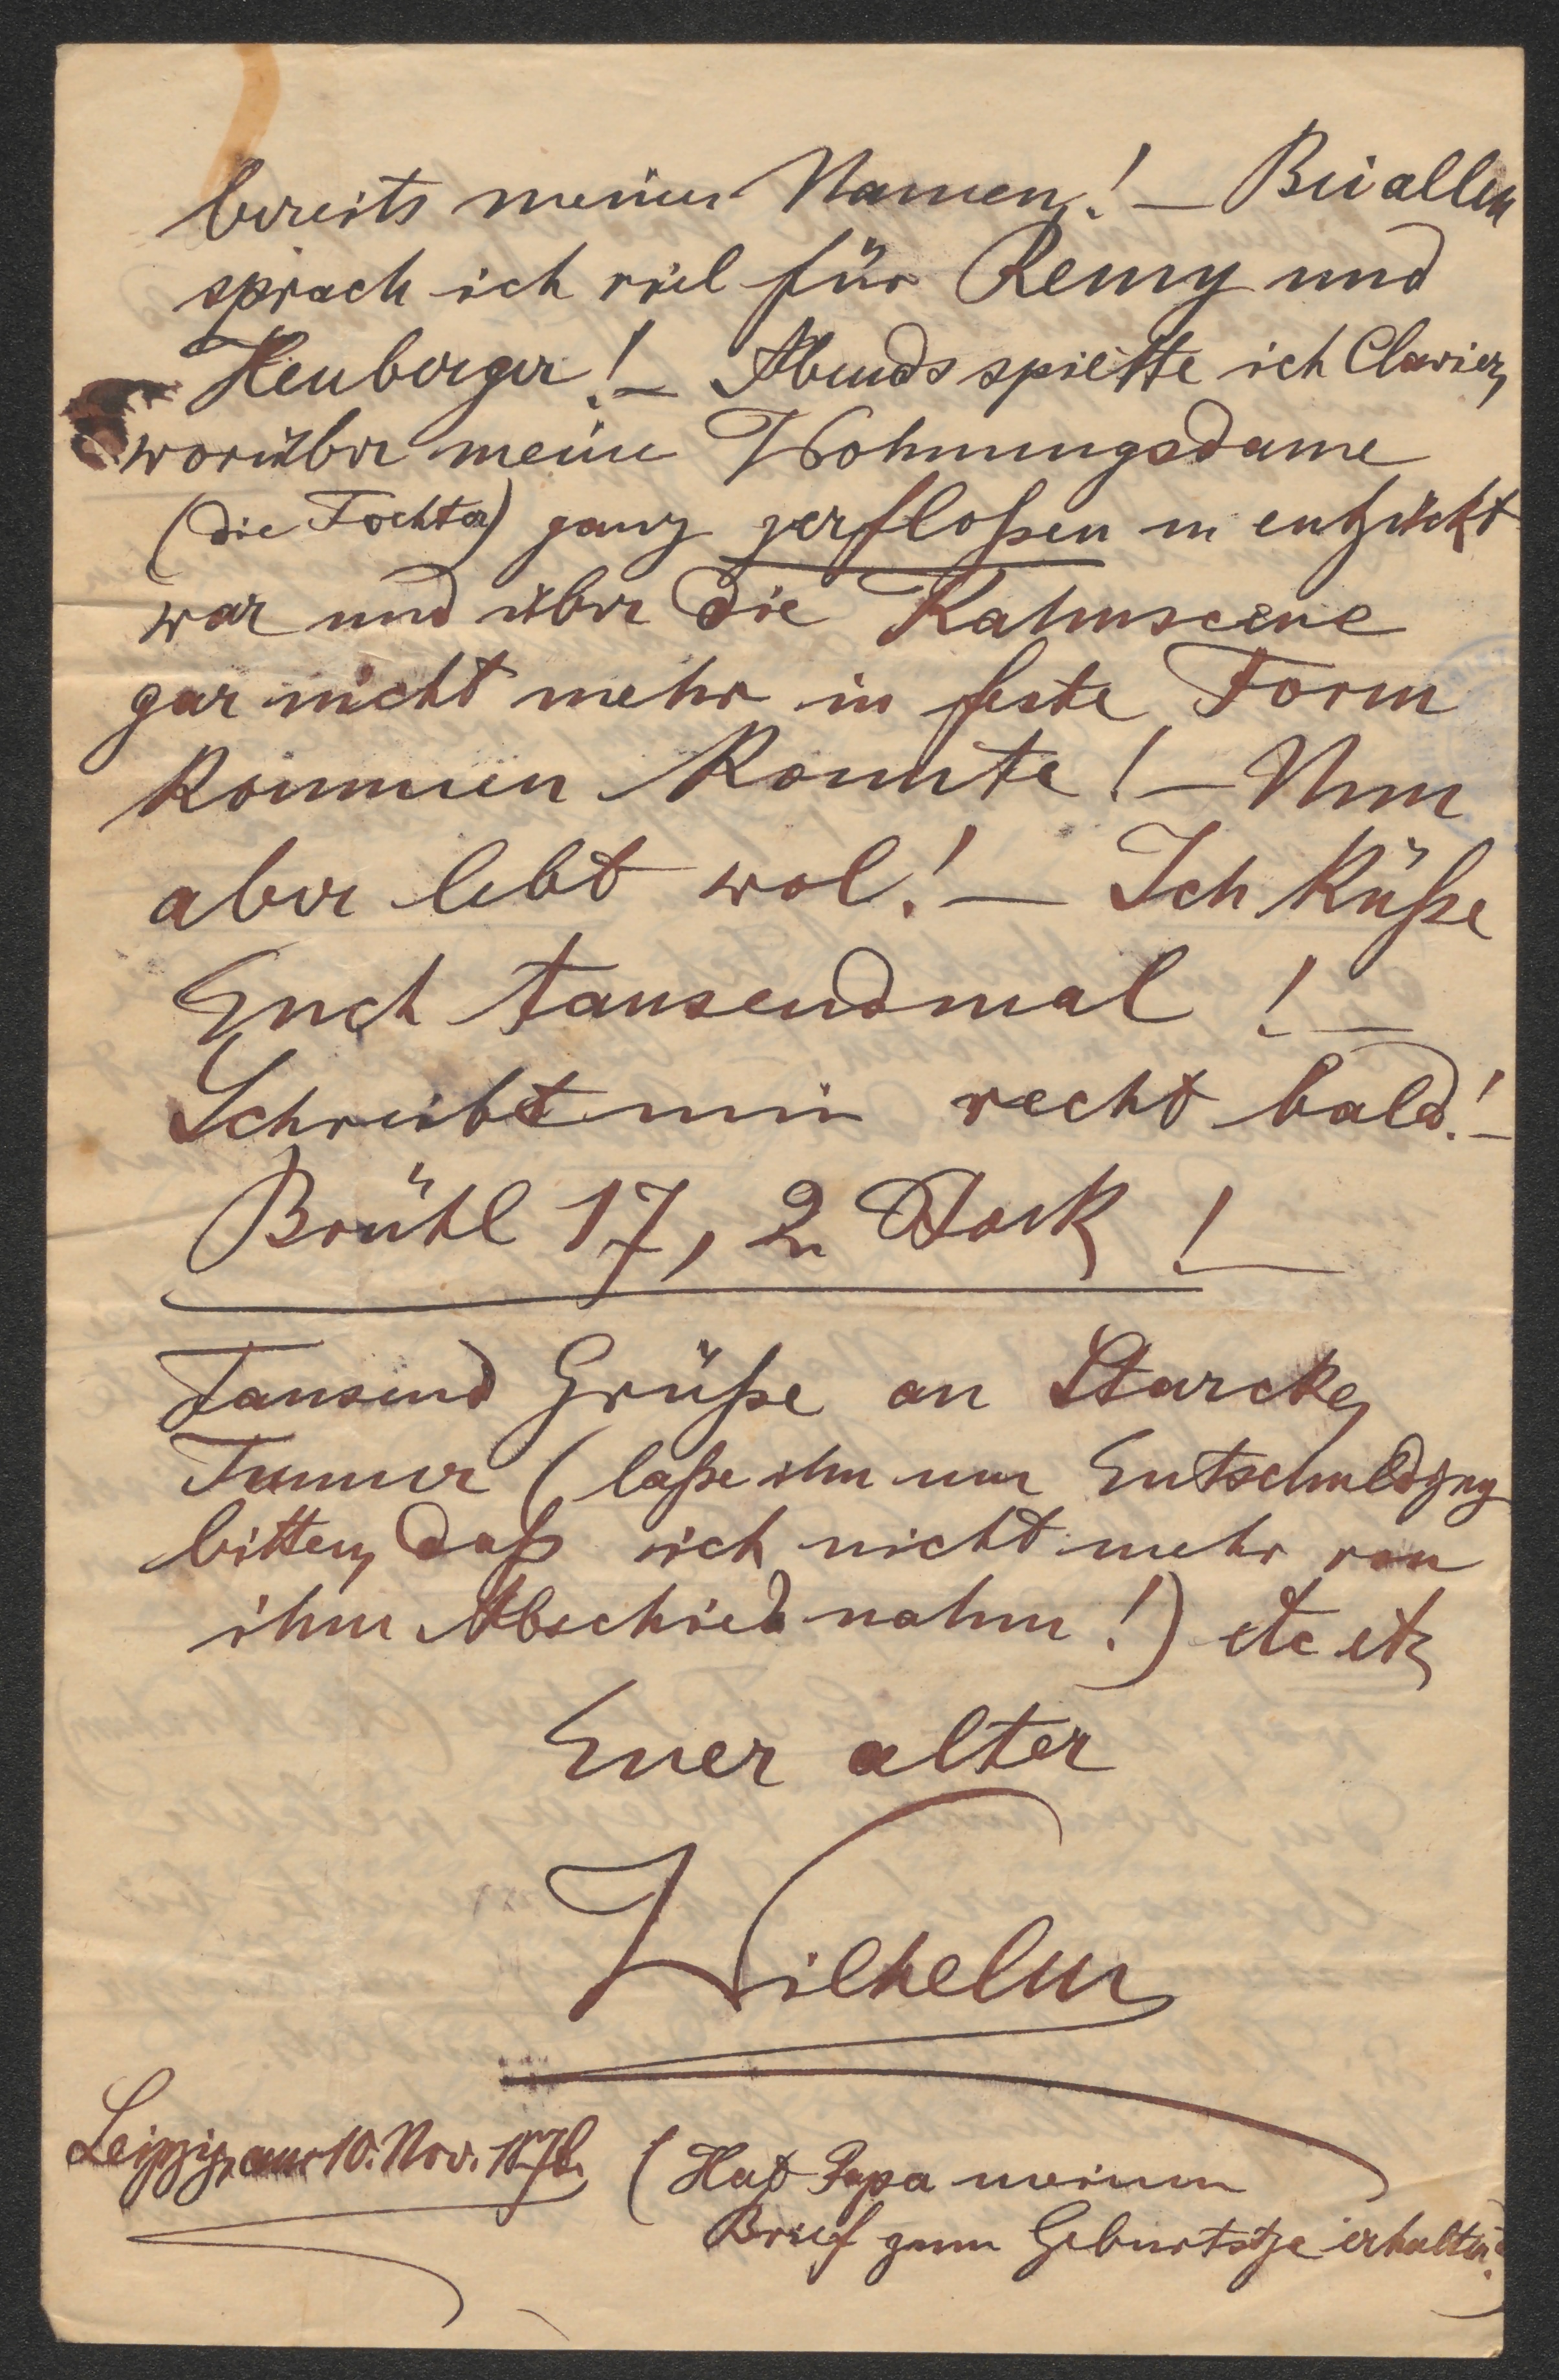 bereits meinen Namen! – Bei allen
sprach ich viel für Remy und
Heuberger! – Abends spielte ich Clavier,
worüber meine Wohnungsdame
(die Tochter) ganz zerfloßen u entzückt
war und über die Kahnscene
gar nicht mehr in feste Form
kommen konnte! – Nun
aber lebt wol! – Ich küße
Euch tausendmal! –
Schreibt mir recht bald! –
Brühl 17, 2 Stock! –
Tausend Grüße an Starcke,
(laße ihn um Entschuldgng
bitten, daß ich nicht mehr von
ihm Abschied nahm!) etc etc
Euer alter
Wilhelm
Leipzig, am 10. Nov. 1878.
(Hat Papa meinen
Brief zum Geburtstge erhalten?)